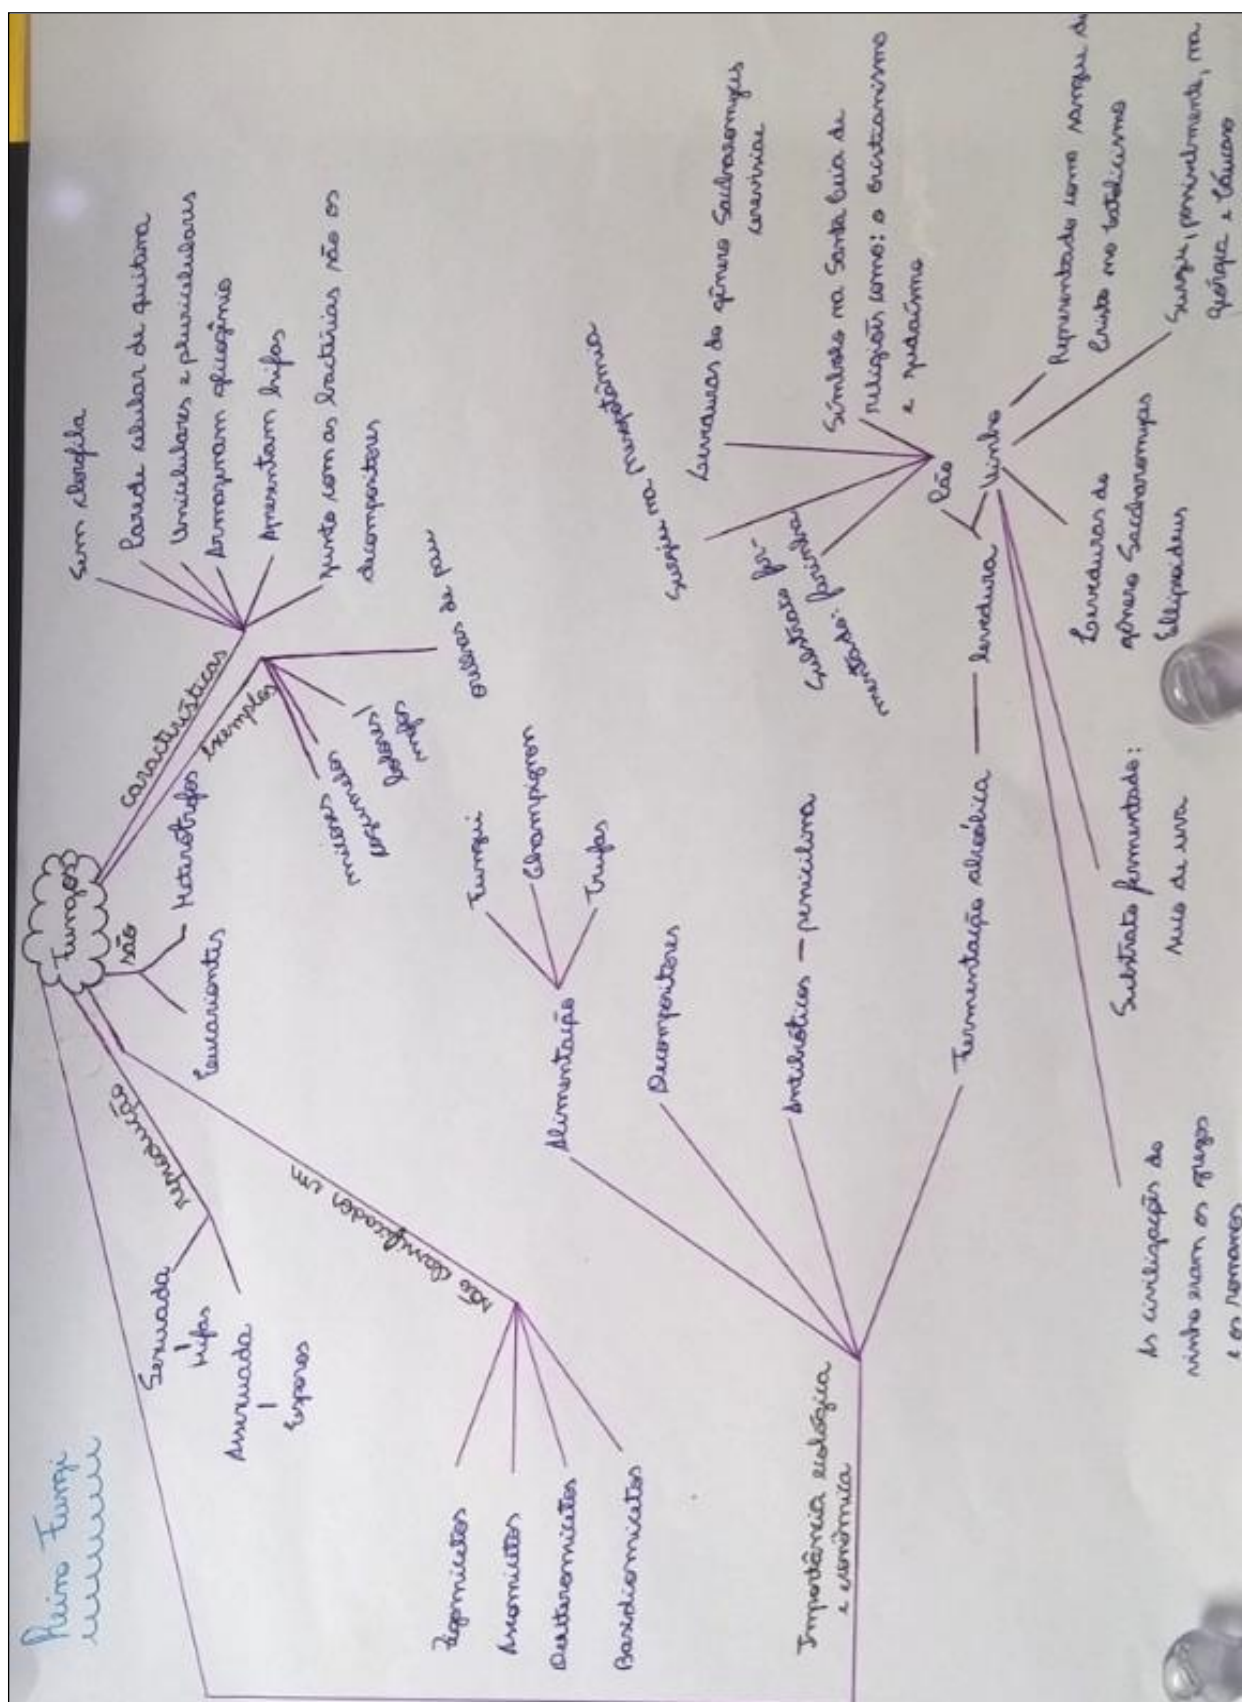 Reino Fungi
Fungos
características
Sem clorofila
Parede celular de quitina
Unicelulares e pluricelulares
Armazenam glicogênio
Apresentam hifas
junto com as bactérias são os
decompositores
exemplos
micoses
cogumelos
bolores/
mofos
orelhas de pau
são
Heterótrofos
Eucariontes
reprodução
Sexuada
Hifas
Assexuada
Esporos
são classificados em
Zigomicetos
Ascomicetos
Deuteromicetos
Basidiomicetos
Importância ecológica
e econômica
Alimentação
Fungui
Champignon
Trufas
Decompositores
Antibióticos — penicilina
Fermentação alcoólica — levedura
Pão
Surgiu na Mesopotâmia
Substrato fer-
mentado: farinha
Leveduras do gênero Saccharomyces
cerevisiae
Símbolo na Santa Ceia de
religiões como: o cristianismo
e judaísmo
Vinho
Representado como sangue de
Cristo no catolicismo
Surgiu, possivelmente, na
Geórgia e Cáucaso
Leveduras do
gênero Saccharomyces
Ellipsoideus
Substrato fermentado:
suco de uva
As civilizações do
vinho eram os gregos
e os romanos